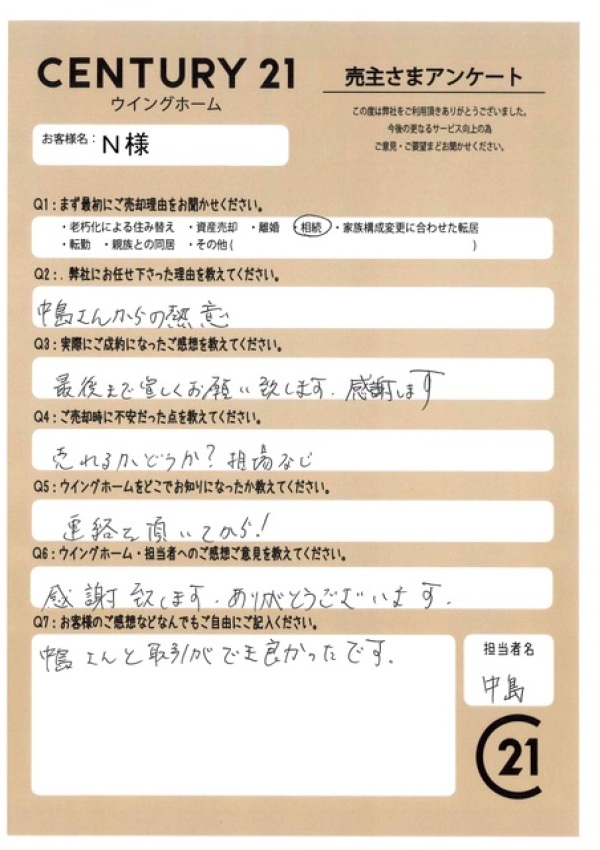 CENTURY 21
ウイングホーム
売主さまアンケート
この度は弊社をご利用頂きありがとうございました。
今後の更なるサービス向上の為
ご意見・ご要望までお聞かせください。
お客様名： N様
Q1：まず最初にご売却理由をお聞かせください。
・老朽化による住み替え ・資産売却 ・離婚 ・相続 ・家族構成変更に合わせた転居
・転勤 ・親族との同居 ・その他（ ）
Q2：．弊社にお任せ下さった理由を教えてください。
中島さんからの熱意
Q3：実際にご成約になったご感想を教えてください。
最後まで宜しくお願い致します. 感謝します
Q4：ご売却時に不安だった点を教えてください。
売れるかどうか? 相場など
Q5：ウイングホームをどこでお知りになったか教えてください。
連絡を頂いてから!
Q6：ウイングホーム・担当者へのご感想ご意見を教えてください。
感謝致します. ありがとうございます.
Q7：お客様のご感想などなんでもご自由にご記入ください。
中島さんと取引ができ良かったです.
担当者名
中島
21